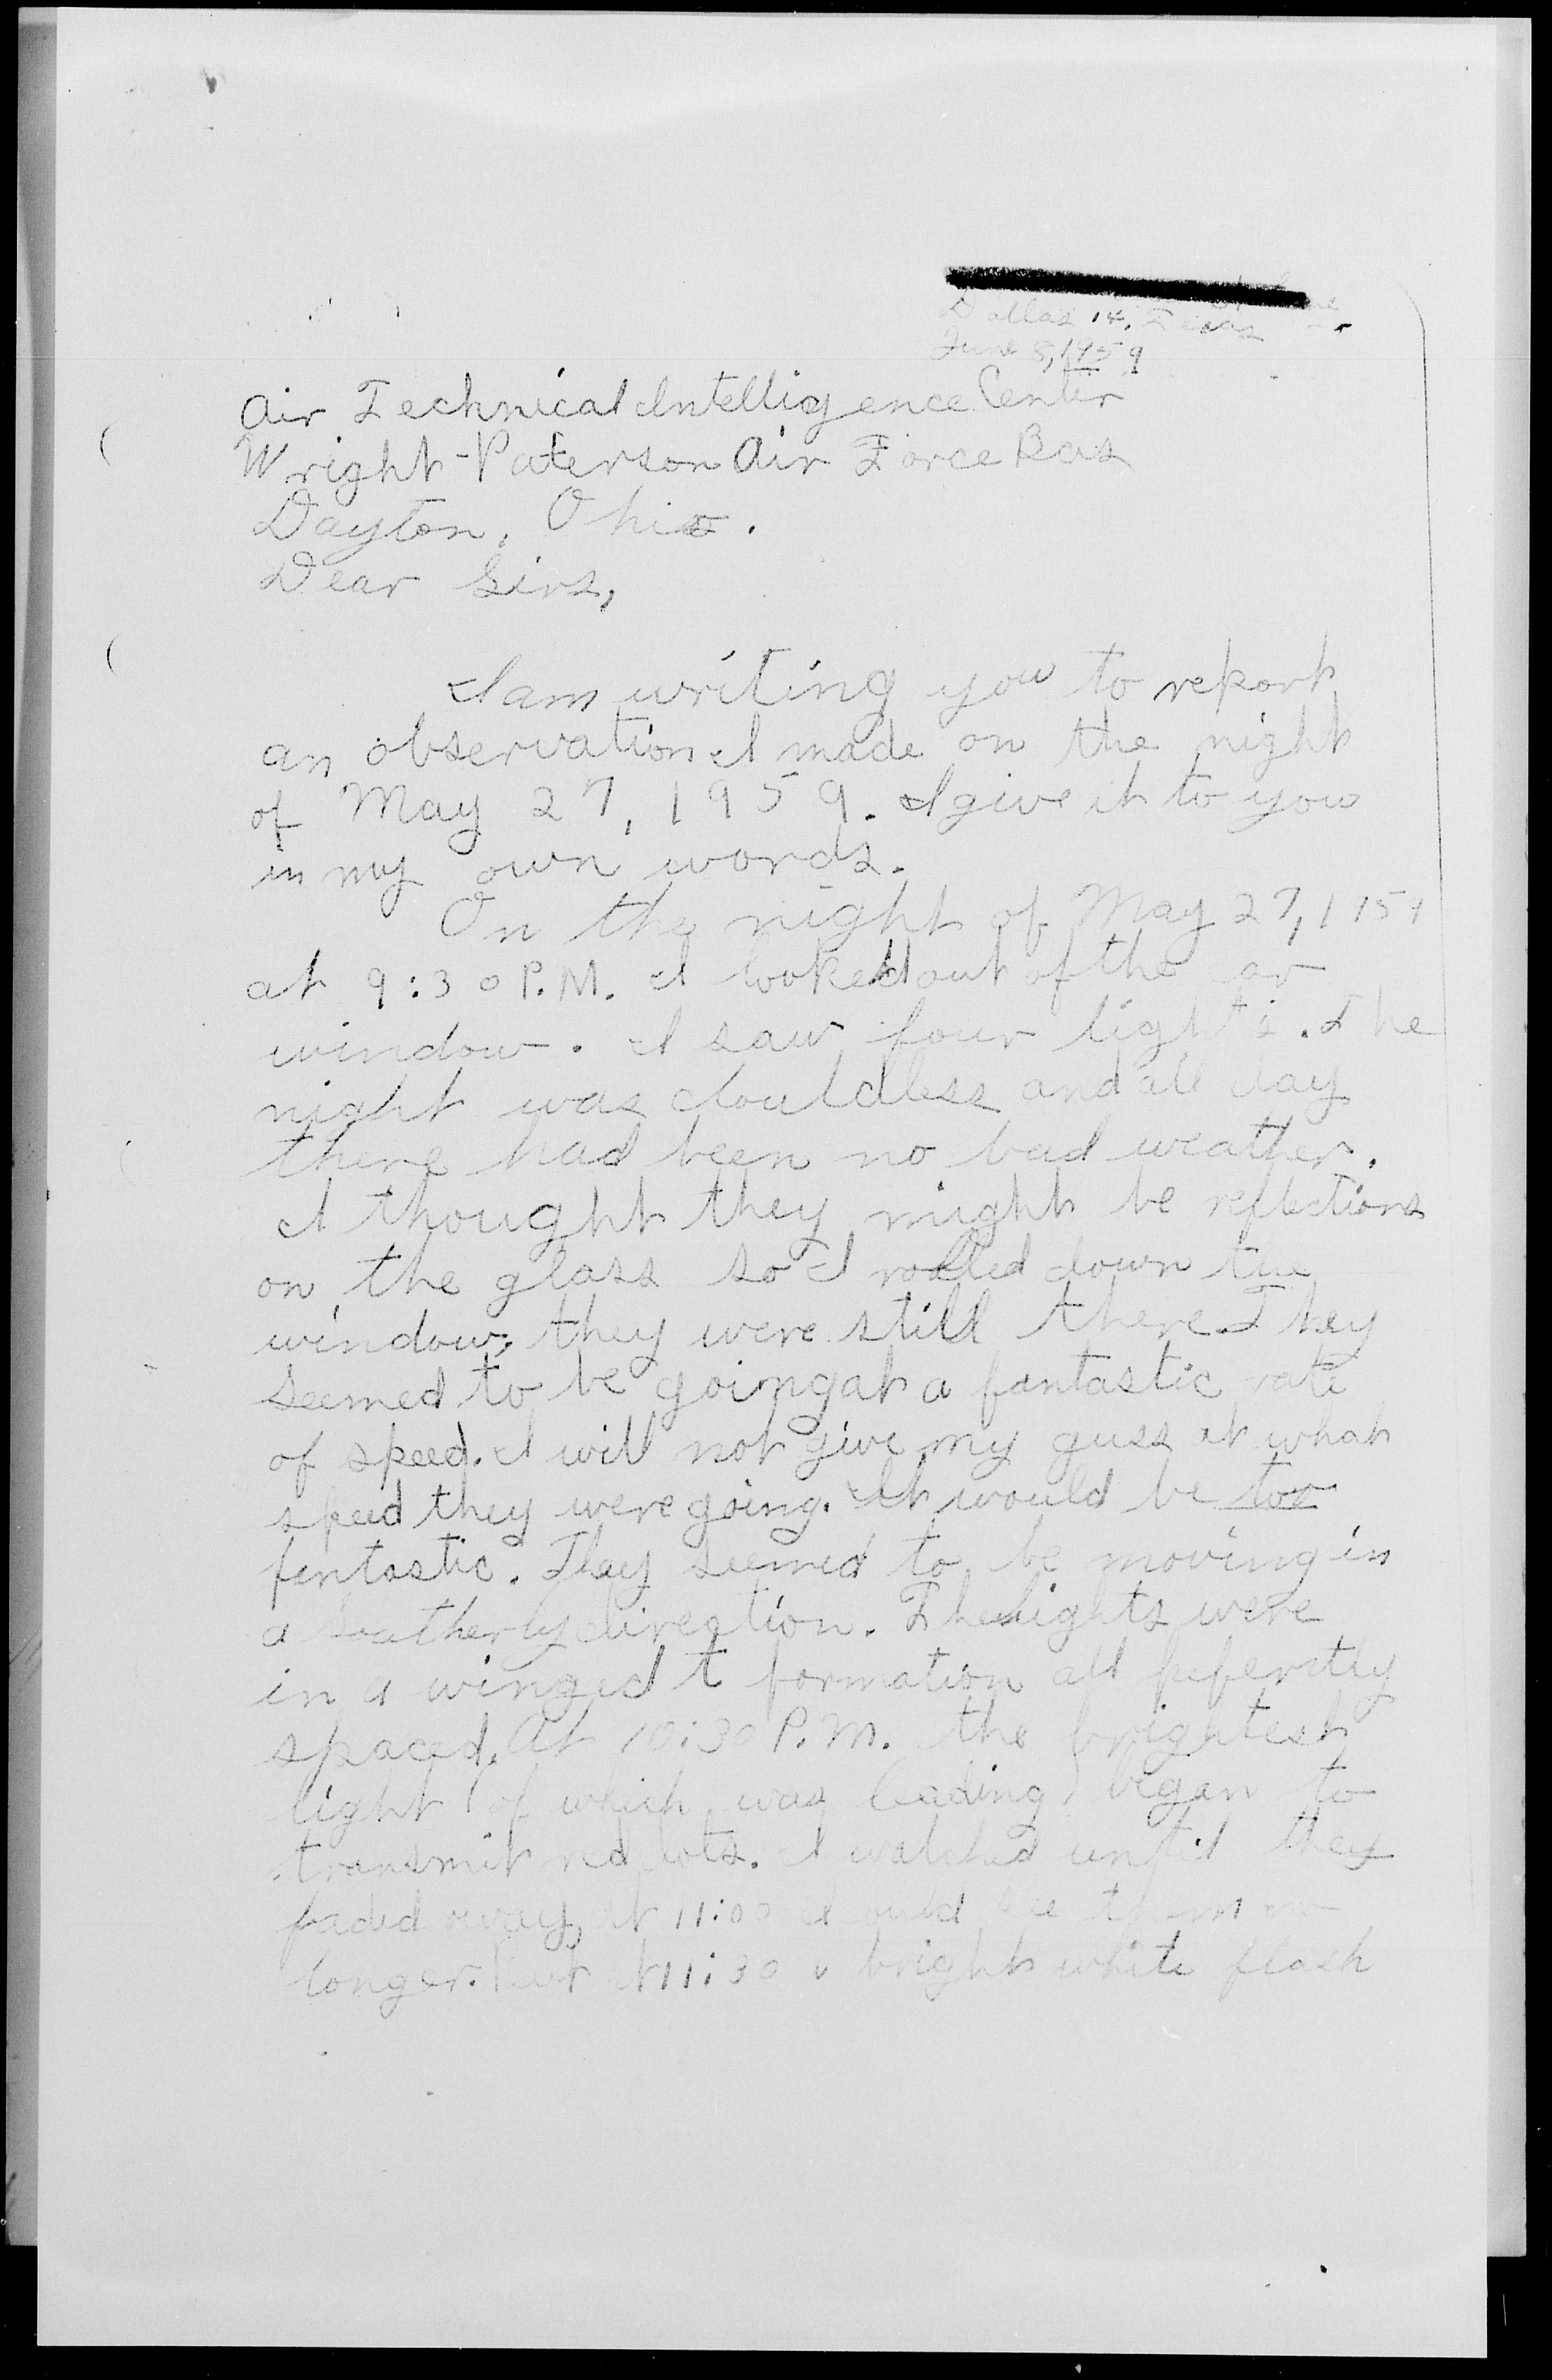 Dallas 14, Texas
June 8, 1959
Air Technical Intelligence Center
Wright-Paterson Air Force Bas
Dayton, Ohio.
Dear Sirs,
I am writing you to report
an observation I made on the night
of May 27, 1959. I give it to you
in my own words.
On the night of May 27, 1959
at 9:30 P.M. I looked out of the car
window. I saw four lights. The
night was clouldless and all day
there had been no bad weather.
I thought they might be reflections
on the glass so I rolled down the
window, they were still there. They
seemed to be going at a fantastic rate
of speed. I will not give my guss at what
speed they were going. It would be too
fentastic. They seemed to be moving in
a southerly direction. The lights were
in a winged t formation all peferctly
spaced. At 10:30 P.M. the brightest
light (of which was leading) began to
transmit red dots. I watched until they
faded away, at 11:00 I could see them no
longer. But at 11:30 a bright white flash